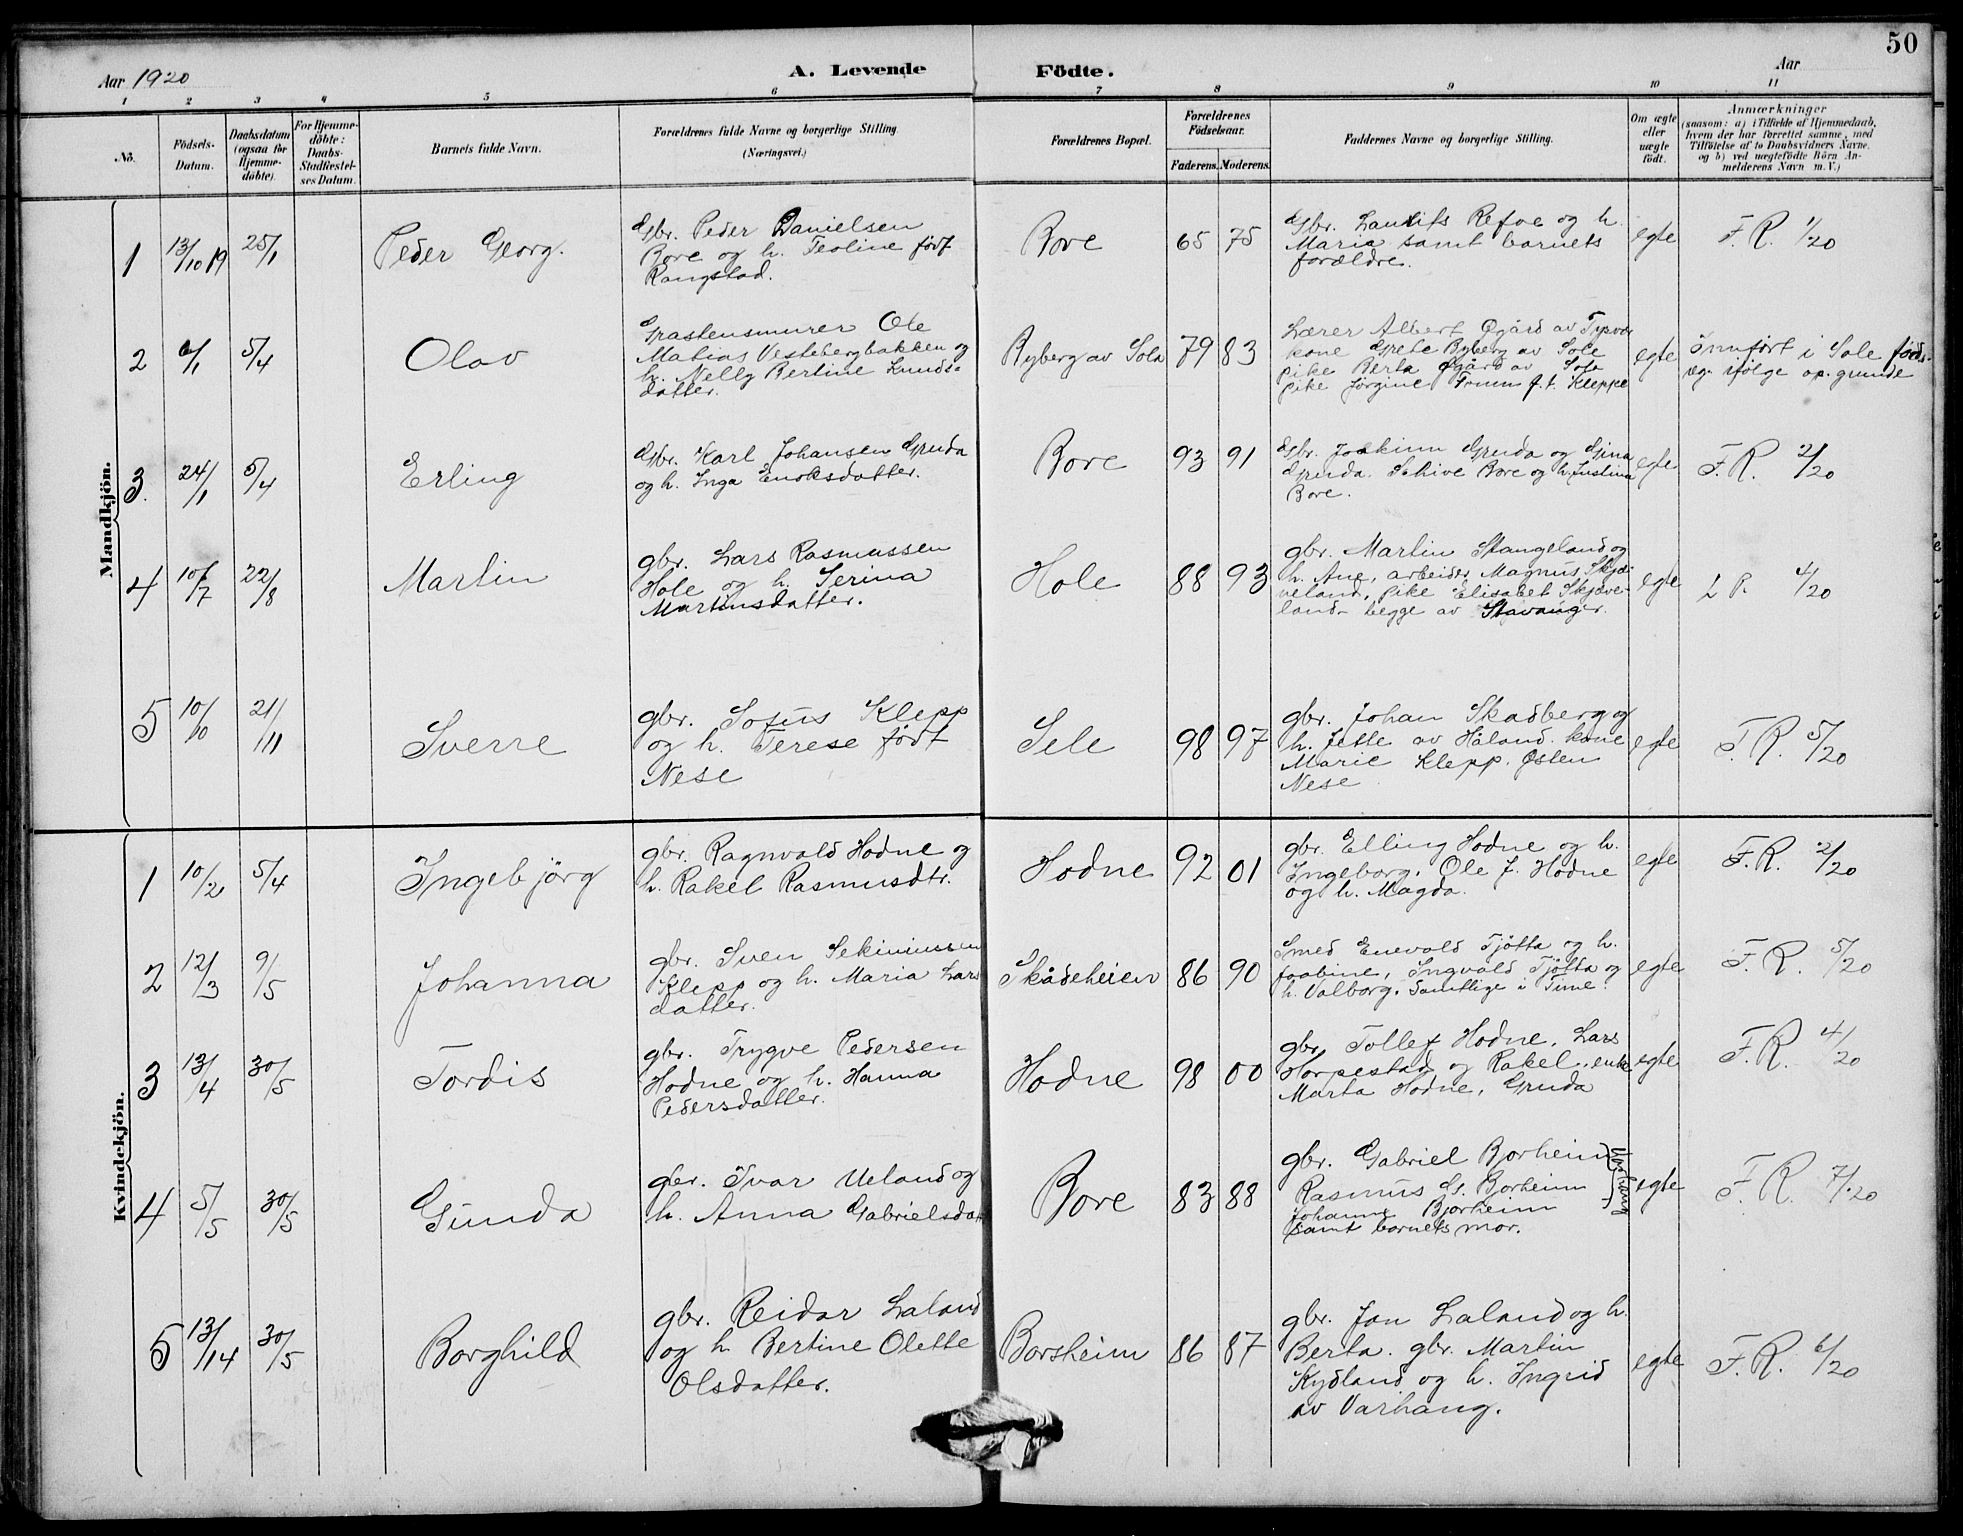 50
Aar 1920
A. Levende Födte.
Aar
1 2 3 4 5 6 7 8 9 10 11
No.
Födsels-Datum.
Daabsdatum (ogsaa for Hjemme-döbte).
For Hjemme-döbte: Daabs-Stadfæstel-ses Datum.
Barnets fulde Navn.
Forældrenes fulde Navne og borgerlige Stilling.
(Næringsvei.)
Forældrenes Bopæl.
Forældrenes Födselsaar.
Faderens. Moderens.
Faddernes Navne og borgerlige Stilling.
Om ægte eller uægte födt.
Anmærkninger
(saasom: a) i Tilfælde af Hjemmedaab,
hvem der har forrettet samme, med
Tilföielse af to Daabsvidners Navne,
og b) ved uægtefödte Börn An-
melderens Navn m. V.)
Mandkjön.
1 13/10 19 25/1 Peder Georg.
Gbr. Peder Danielsen
Bore og h. Teoline födt
Rangstad.
Bore 65 75
Gbr. Laurits Refve og h.
Maria samt barnets
forældre.
egte F. R. 1/20
2 6/1 5/4 Olav
Grastensmurer Ole
Matias Vestebergbakken og
h. Nelly Bertine Lunds-
datter.
Byberg av Sola 79 83
Lærer Albert Øgård av Tysvær
kone Grete Byberg av Sole
pike Berta Øgård av Sola
pike Jörgine f. t. Kleppe
egte Innfört i Sole föds.
reg. ifölge op. grunde
3. 24/1 5/4 Erling
Gbr. Karl Johansen Gruda
og h. Inga Enoksdatter.
Bore 93 91
Gbr. Joakim Gruda og Gina
Gruda. Bore og h. Justina
Bore.
egte F. R. 2/20
4 10/7 22/8 Martin
gbr. Lars Rasmussen
Hole og h. Serina
Martinsdatter.
Hole 88 93
gbr. Martin Stangeland og
h. Ane, arbeider Magnus Skjæ-
veland, pike Elisabet Skjæve-
land begge av Stavanger.
egte 4/20
5 10/10 21/11 Sverre
gbr. Sofus Klepp
og h. Terese födt
Nese
Sele 98 97
gbr. Johan Skadberg og
h. Jette av Håland. kone
Marie Klepp. Østen
Nese
egte F. R. 5/20
Kvindekjön.
1 10/2 5/4 Ingebjörg
gbr. Ragnvald Hodne og
h. Rakel Rasmusdtr.
Hodne 92 01
gbr. Elling Hodne og h.
Ingeborg. Ole J. Hodne
og h. Magda.
egte F. R. 2/20
2 12/3 9/5 Johanna
gbr. Sven Sekiniussen
Klepp og h. Maria Lars
datter.
Skådeheien 86 90
Smed Enevald Tjötta og h.
Jaabine, Ingvald Tjötta og
h. Valborg. Samtlige i Time.
egte F. R. 5/20
3 13/4 30/5 Tordis
gbr. Trygve Pedersen
Hodne og h. Hanna
Pedersdatter.
Hodne 98 00
gbr. Tollef Hodne. Lars
Horpestad og Rakel, enke
Marta Hodne, Gruda
egte F. R. 4/20
4 5/5 30/5 Gunda
gbr. Ivar Ueland og
h. Anna Gabrielsdat
Bore 83 88
gbr. Gabriel Bjorheim
Rasmus G. Bjorheim
Johanne Bjorheim
samt barnets mor.
Varhaug
egte F. R. 7/20
5 13/14 30/5 Borghild
gbr. Reidar Laland
og h Bertine Olette
Olsdatter.
Borsheim 86 87
gbr. Jon Laland og h.
Berta. gbr. Martin
Kydland og h. Ingrid
av Varhaug.
egte F. R. 6/20